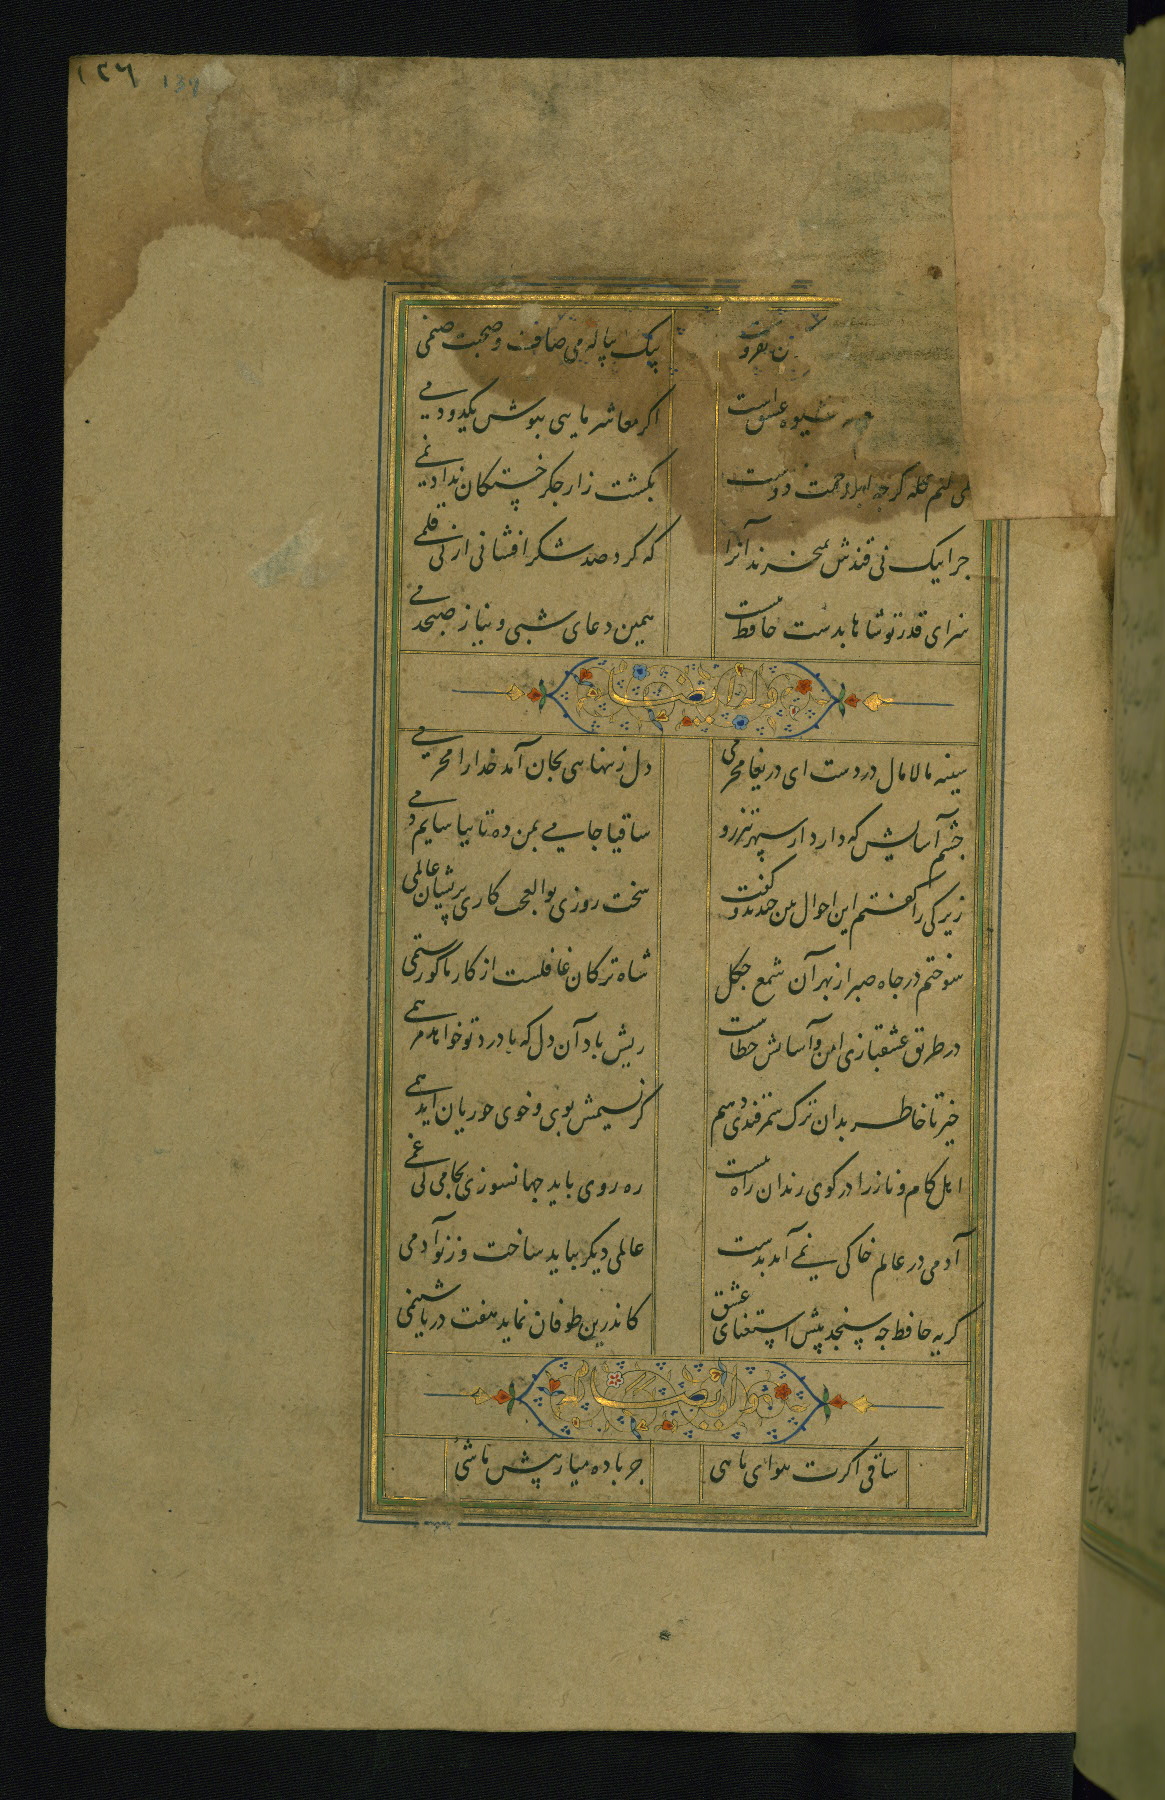 ١٢٦ 127
بیک پیاله می صاف و صحبت صنمی
شیوه عشق است اگر معاشر مایی بنوش یکدو دمی
بکشت زار جکر خستکان نداد نمی
جرا بیک نی قندش نمیخرند آنرا که کرد صد شکر افشانی از نی قلمی
سزای قدر تو شاها بدست حافظ نیست همین دعای شبی و نیاز صبحدمی
وله ایضا
سینه مالامال دردست ای دریغا محرمی دل ز تنهایی بجان آمد خدا را محرمی
جشم آسایش که دارد از سپهر تیزرو ساقیا جامی بمن ده تا بیاسایم دمی
زیرکی را کفتم این احوال بین خندید و کفت سخت روزی بوالعجب کاری پریشان عالمی
سوختم در جاه صبر از بهر آن شمع جکل شاه ترکان غافلست از کار ما کو رستمی
در طریق عشقبازی امن و آسایش خطاست ریش باد آن دل که با درد تو خواهد مرهمی
خیز تا خاطر بدان ترک سمرقندی دهیم کز نسیمش بوی و خوی حوریان آید همی
اهل کام و ناز را در کوی رندان راه نیست ره روی باید جهانسوزی نه خامی بی غمی
آدمی در عالم خاکی نمی آید بدست عالمی دیکر بباید ساخت وز نو آدمی
کریه حافظ جه سنجد پیش استغنای عشق کاندرین طوفان نماید هفت دریا شبنمی
وله ایضا
ساقی اکرت هوای ما هی جز باده میار پیش ما شی